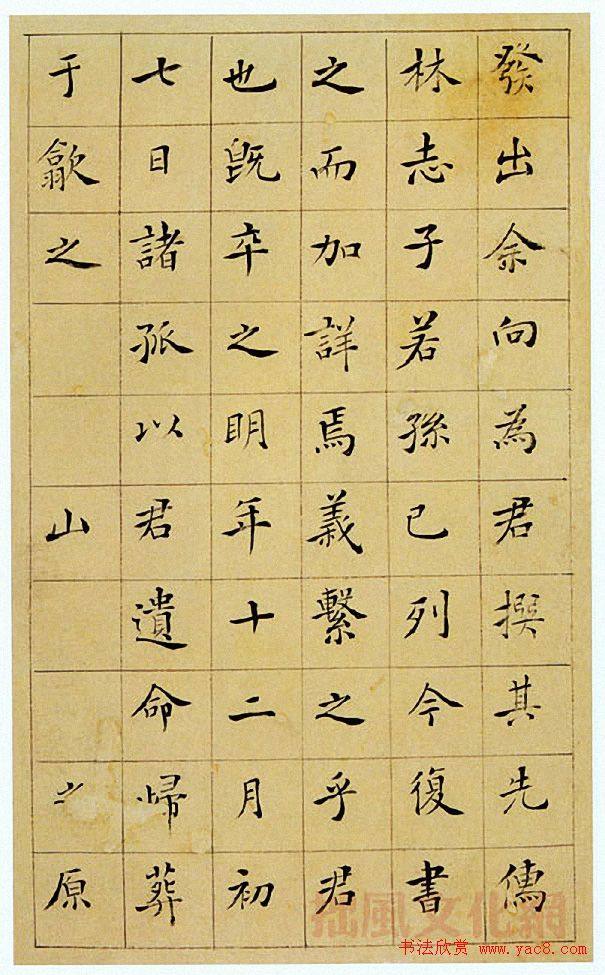 發出余向為君撰其先儒
林志子若孫已列今復書
之而加詳焉義繫之乎君
也既卒之明年十二月初
七日諸孤以君遺命歸葬
于歙之山之原
书法欣赏 www.yac8.com